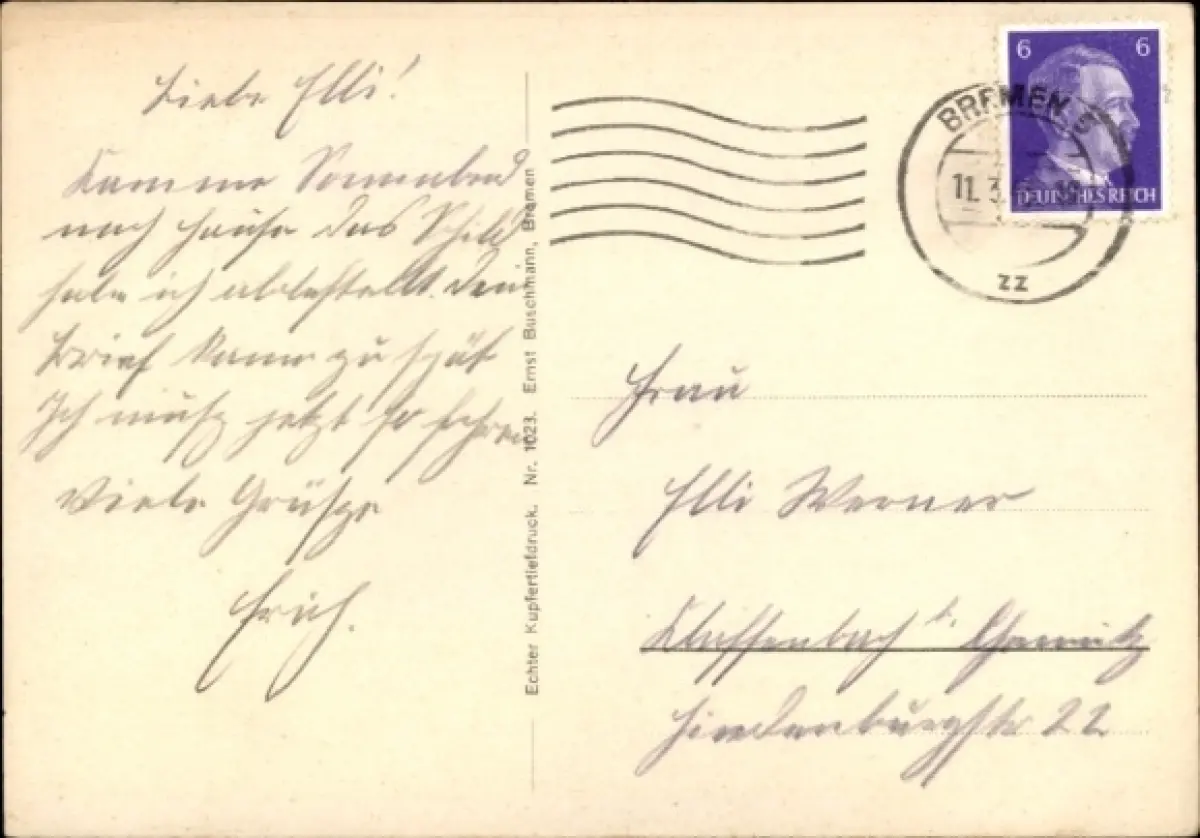 Liebe Elli!
Komme Sonnabend
nach Hause das Schild
habe ich abbestellt. Dein
Brief kam zu spät
Ich muß jetzt so fahren
Viele Grüße
Erich.
Echter Kupfertiefdruck. Nr. 1023. Ernst Buschmann, Bremen
6 6
DEUTSCHES REICH
BREMEN 5
11. 3.
zz
Frau
Elli Werner
Klaffenbach b. Chemnitz
Hindenburgstr 22